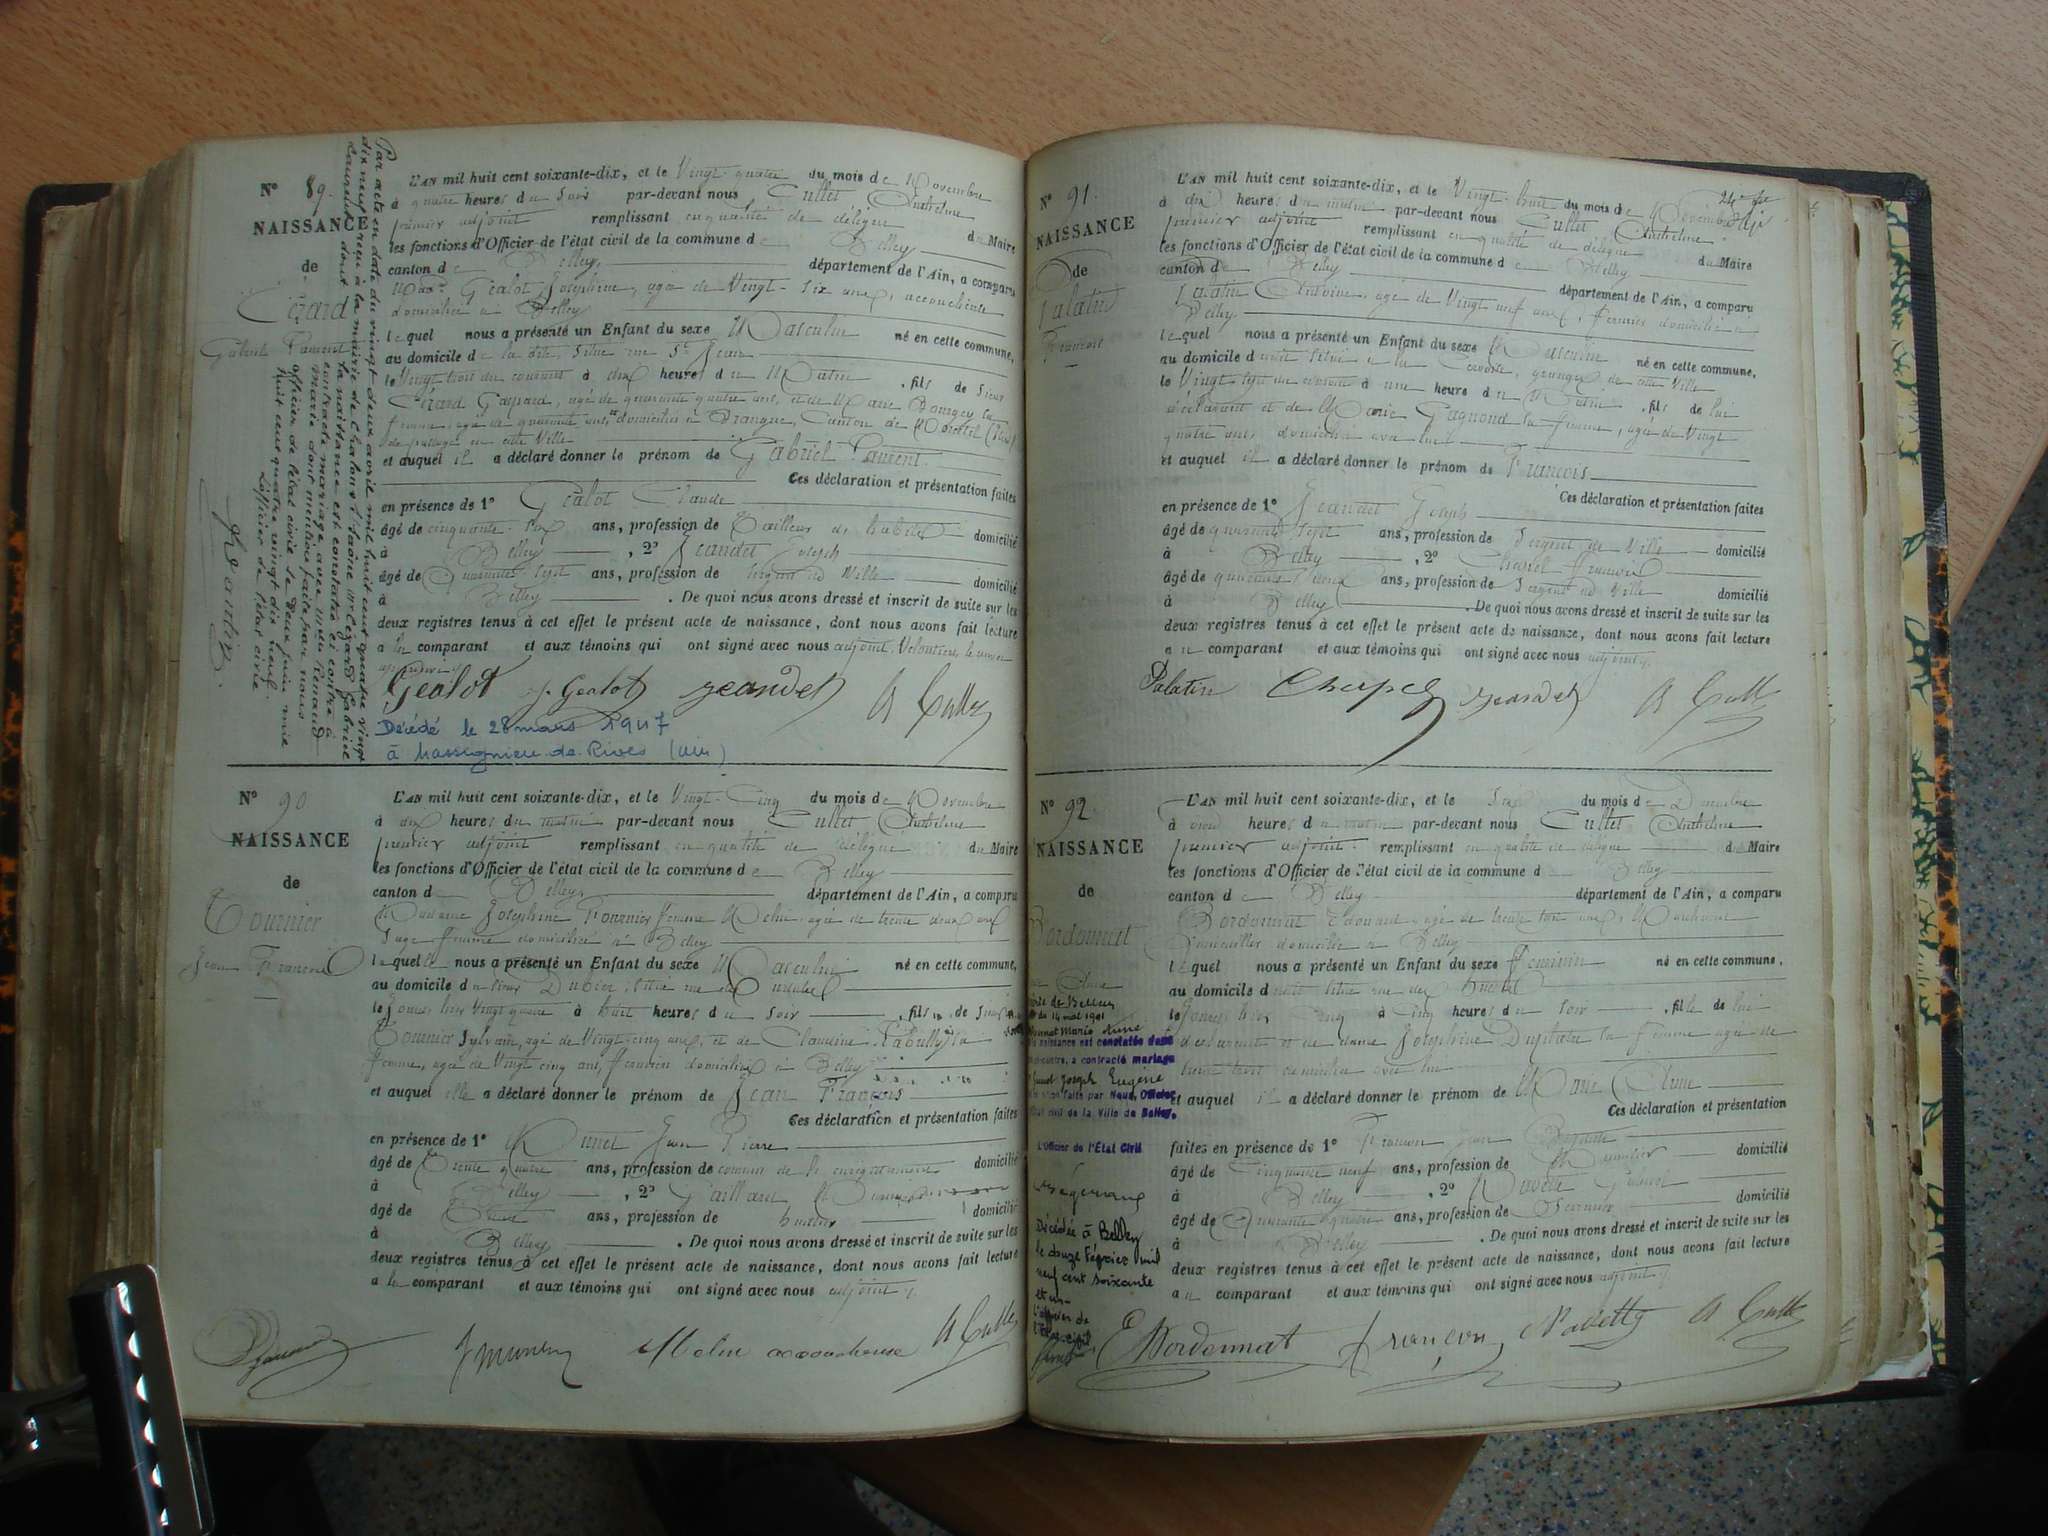 N° 89.
NAISSANCE
de
Cézard
Gabriel Laurent
Par acte en date du vingt deux avril mil huit cent quatre vingt
dix neuf reçu à la mairie de Chalons s/ Saône Mr Cézard Gabriel
Laurent dont la naissance est constatée ci contre à
contracté mariage avec Mlle Renaud
Marie dont mention faite par nous
officier de l'état civil le deux juin mil
huit cent quatre vingt dix neuf.
L'officier de l'état civil
L'AN mil huit cent soixante-dix, et le Vingt-quatre du mois de Novembre
à quatre heures du soir par-devant nous Cullet Anthelme
premier adjoint remplissant en qualité de délégué du Maire
les fonctions d'Officier de l'état civil de la commune de Belley
canton de Belley département de l'Ain, a comparu
Mme Géalot Joséphine, agée de Vingt-six ans, accoucheuse
domiciliée à Belley
lequel nous a présenté un Enfant du sexe Masculin né en cette commune,
au domicile de la dite, situé rue St Jean
le Vingt trois du courant à dix heures du Matin, fils de Sieur
Cézard Gaspard, agé de quarante quatre ans, et de Marie Bourgey sa
femme, agée de quarante ans, domiciliés à Brangue, Canton de Morestel (Isère)
de passage en cette Ville
et auquel il a déclaré donner le prénom de Gabriel Laurent
Ces déclaration et présentation faites
en présence de 1° Géalot Claude
âgé de cinquante-six ans, profession de Tailleur d'habits domicilié
à Belley, 2° Jeandet Joseph
âgé de Quarante sept ans, profession de sergent de Ville domicilié
à Belley. De quoi nous avons dressé et inscrit de suite sur les
deux registres tenus à cet effet le présent acte de naissance, dont nous avons fait lecture
a la comparant et aux témoins qui ont signé avec nous adjoint.
Géalot J. Gealot Jeandet A Cullet
Décédé le 28 mars 1947
à Massignieu-de-Rives (Ain)
N° 90
NAISSANCE
de
Tournier
Jean François
L'AN mil huit cent soixante-dix, et le Vingt-Cinq du mois de Novembre
à dix heures du matin par-devant nous Cullet Anthelme
premier adjoint remplissant en qualité de délégué du Maire
les fonctions d'Officier de l'état civil de la commune de Belley
canton de Belley département de l'Ain, a comparu
Madame Joséphine Fournier femme Melin, agée de trente deux ans
Sage femme domiciliée à Belley
lequelle nous a présenté un Enfant du sexe Masculin né en cette commune,
au domicile du sieur Dubier, situé rue des
le Jour hier Vingt quatre à huit heures du soir, fils de Sieur
Tournier Sylvain, agé de Vingt-cinq ans, et de Claudine sa
femme, agée de Vingt cinq ans, domiciliés à Belley
et auquel elle a déclaré donner le prénom de Jean François
Ces déclaration et présentation faites
en présence de 1° Munet Jean Pierre
âgé de Trente quatre ans, profession de commis de l'enregistrement domicilié
à Belley, 2° Gaillard
âgé de Trente ans, profession de huissier domicilié
à Belley. De quoi nous avons dressé et inscrit de suite sur les
deux registres tenus à cet effet le présent acte de naissance, dont nous avons fait lecture
a la comparant et aux témoins qui ont signé avec nous adjoint
Melin accoucheuse A Cullet
N° 91.
NAISSANCE
de
Palatin
François
L'AN mil huit cent soixante-dix, et le Vingt-huit du mois de Novembre
à dix heures du matin par-devant nous Cullet Anthelme
premier adjoint remplissant en qualité de délégué du Maire
les fonctions d'Officier de l'état civil de la commune de Belley
canton de Belley département de l'Ain, a comparu
Palatin Antoine, agé de Vingt neuf ans, fermier domicilié à
Belley
lequel nous a présenté un Enfant du sexe Masculin né en cette commune,
au domicile dudit situé à la granges de cette Ville
le Vingt-sept du courant à une heure du Matin, fils de lui
déclarant et de Marie Gagnoud sa femme, agée de Vingt
quatre ans, domiciliée avec lui
et auquel il a déclaré donner le prénom de François
Ces déclaration et présentation faites
en présence de 1° Jeandet Joseph
âgé de quarante sept ans, profession de Sergent de Ville domicilié
à Belley, 2° Chapel François
âgé de quarante ans, profession de Sergent de Ville domicilié
à Belley. De quoi nous avons dressé et inscrit de suite sur les
deux registres tenus à cet effet le présent acte de naissance, dont nous avons fait lecture
a u comparant et aux témoins qui ont signé avec nous adjoint
Palatin Chapel Jeandet A Cullet
N° 92.
NAISSANCE
de
Bordonnat
Marie Anne
du 14 mai 1901
Bordonnat Marie Anne
dont la naissance est constatée dans
ci-contre, a contracté mariage
Joseph Eugène
mention faite par Nous, Officier
de l'État civil de la Ville de Belley.
L'Officier de l'État Civil
Décédée à Belley
le douze Février mil
neuf cent soixante
et un
L'officier de
l'état civil
L'AN mil huit cent soixante-dix, et le Six du mois de Décembre
à heures du matin par-devant nous Cullet Anthelme
premier adjoint remplissant en qualité de délégué du Maire
les fonctions d'Officier de l'état civil de la commune de Belley
canton de Belley département de l'Ain, a comparu
Bordonnat Edouard, agé de trente trois ans,
domicilié à Belley
lequel nous a présenté un Enfant du sexe Féminin né en cette commune,
au domicile dudit situé rue des
le Jour hier Cinq à Cinq heures du Soir, fille de lui
déclarant et de dame Joséphine sa femme agée de
trente ans domiciliée avec lui
et auquel il a déclaré donner le prénom de Marie Anne
Ces déclaration et présentation
faites en présence de 1° Françon Jean Baptiste
âgé de Cinquante neuf ans, profession de domicilié
à Belley, 2° Navette
âgé de Quarante quatre ans, profession de domicilié
à Belley. De quoi nous avons dressé et inscrit de suite sur les
deux registres tenus à cet effet le présent acte de naissance, dont nous avons fait lecture
a u comparant et aux témoins qui ont signé avec nous adjoint
E Bordonnat Françon Navette A Cullet